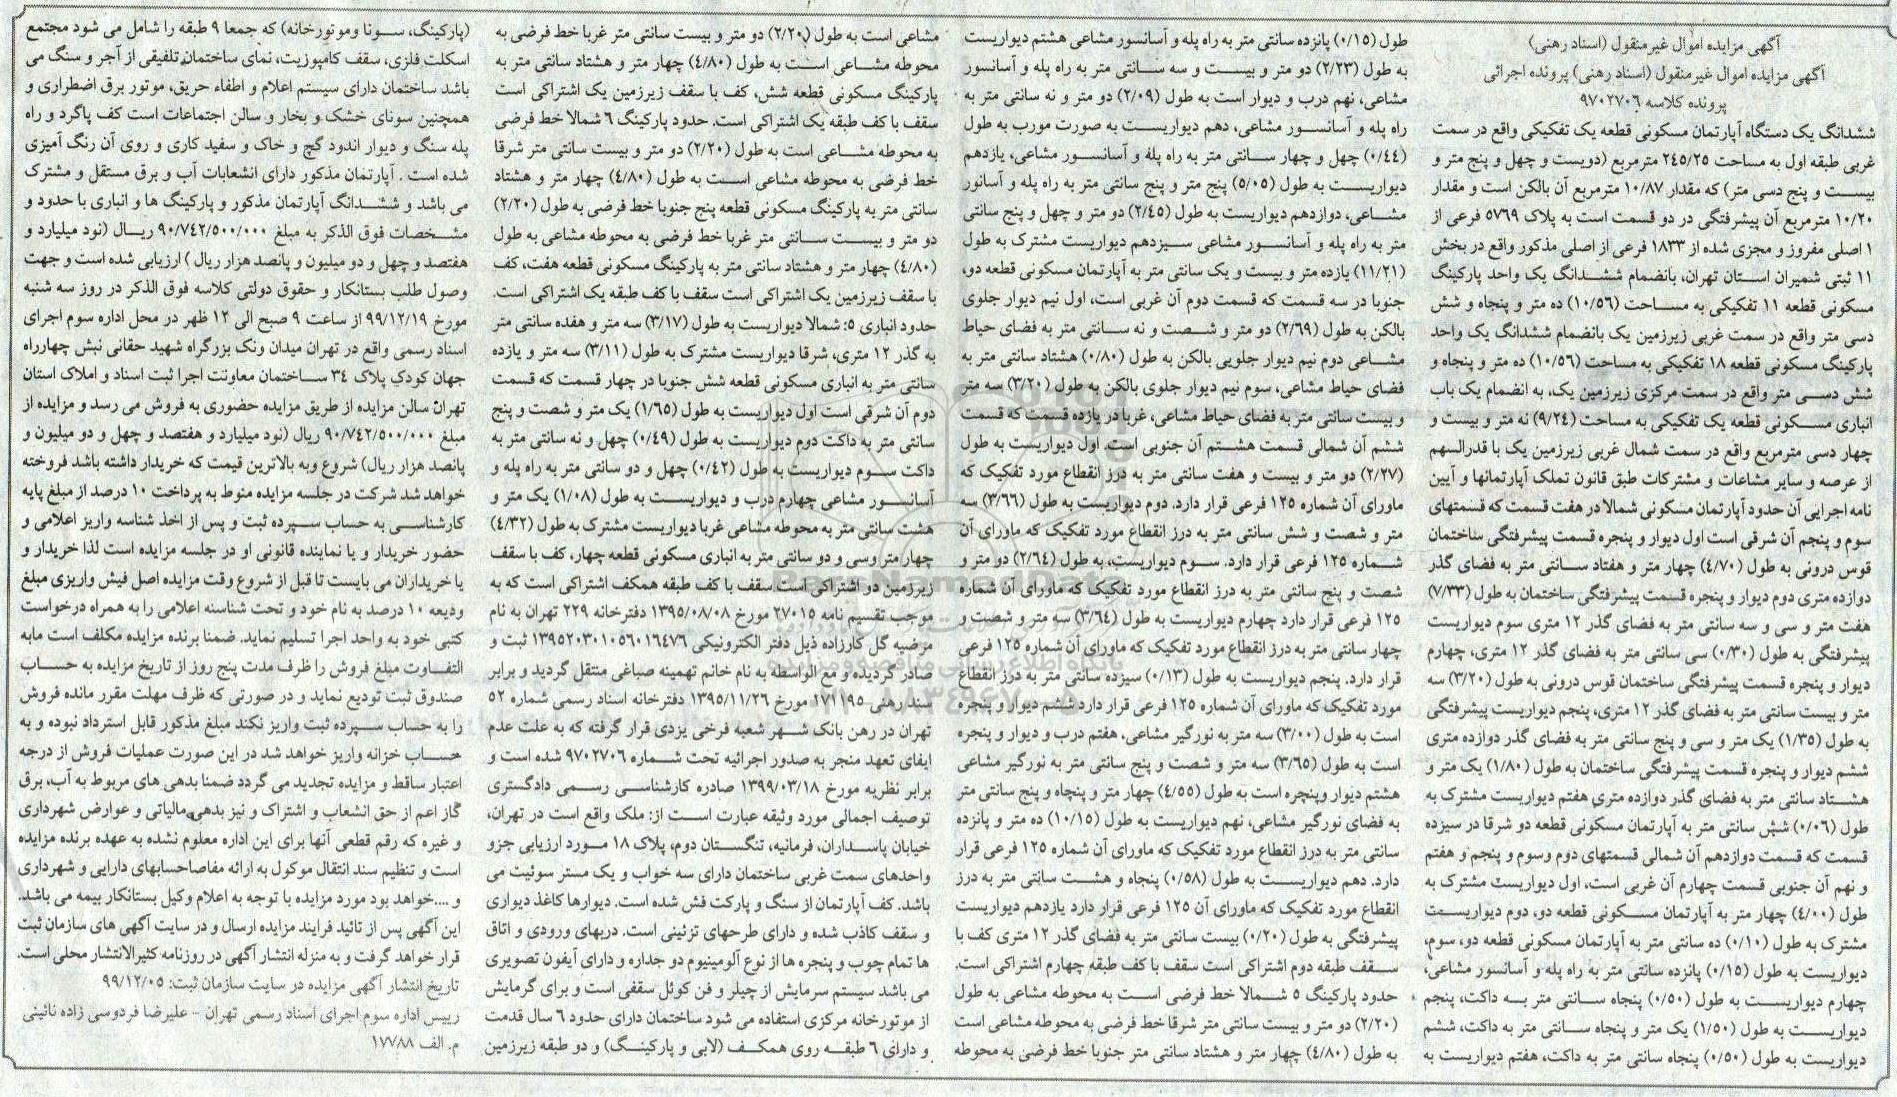 آگهی مزایده اموال غیرمنقول (اسناد رهنی)
آگهی مزایده اموال غیرمنقول (اسناد رهنی) پرونده اجرائی
پرونده کلاسه ۹۷۰۲۷۰۶
ششدانگ یک دستگاه آپارتمان مسکونی قطعه یک تفکیکی واقع در سمت
غربی طبقه اول به مساحت ۲۴۵/۲۵ مترمربع (دویست و چهل و پنج متر و
بیست و پنج دسی متر) که مقدار ۱۰/۸۷ مترمربع آن بالکن است و مقدار
۱۰/۲۰ مترمربع آن پیشرفتگی در دو قسمت است به پلاک ۵۷۶۹ فرعی از
۱ اصلی مفروز و مجزی شده از ۱۸۳۳ فرعی از اصلی مذکور واقع در بخش
۱۱ ثبتی شمیران استان تهران، بانضمام ششدانگ یک واحد پارکینگ
مسکونی قطعه ۱۱ تفکیکی به مساحت (۱۰/۵۶) ده متر و پنجاه و شش
دسی متر واقع در سمت غربی زیرزمین یک بانضمام ششدانگ یک واحد
پارکینگ مسکونی قطعه ۱۸ تفکیکی به مساحت (۱۰/۵۶) ده متر و پنجاه و
شش دسی متر واقع در سمت مرکزی زیرزمین یک، به انضمام یک باب
انباری مسکونی قطعه یک تفکیکی به مساحت (۹/۲۴) نه متر و بیست و
چهار دسی مترمربع واقع در سمت شمال غربی زیرزمین یک با قدرالسهم
از عرصه و سایر مشاعات و مشترکات طبق قانون تملک آپارتمانها و آیین
نامه اجرایی آن حدود آپارتمان مسکونی شمالا در هفت قسمت که قسمتهای
سوم و پنجم آن شرقی است اول دیوار و پنجره قسمت پیشرفتگی ساختمان
قوس درونی به طول (۴/۷۰) چهار متر و هفتاد سانتی متر به فضای گذر
دوازده متری دوم دیوار و پنجره قسمت پیشرفتگی ساختمان به طول (۷/۳۳)
هفت متر و سی و سه سانتی متر به فضای گذر ۱۲ متری سوم دیواریست
پیشرفتگی به طول (۰/۳۰) سی سانتی متر به فضای گذر ۱۲ متری، چهارم
دیوار و پنجره قسمت پیشرفتگی ساختمان قوس درونی به طول (۳/۲۰) سه
متر و بیست سانتی متر به فضای گذر ۱۲ متری، پنجم دیواریست پیشرفتگی
به طول (۱/۳۵) یک متر و سی و پنج سانتی متر به فضای گذر دوازده متری
ششم دیوار و پنجره قسمت پیشرفتگی ساختمان به طول (۱/۸۰) یک متر و
هشتاد سانتی متر به فضای گذر دوازده متری هفتم دیواریست مشترک به
طول (۰/۰۶) شش سانتی متر به آپارتمان مسکونی قطعه دو شرقا در سیزده
قسمت که قسمت دوازدهم آن شمالی قسمتهای دوم وسوم و پنجم و هفتم
و نهم آن جنوبی قسمت چهارم آن غربی است، اول دیواریست مشترک به
طول (۴/۰۰) چهار متر به آپارتمان مسکونی قطعه دو، دوم دیواریست
مشترک به طول (۰/۱۰) ده سانتی متر به آپارتمان مسکونی قطعه دو، سوم،
دیواریست به طول (۰/۱۵) پانزده سانتی متر به راه پله و آسانسور مشاعی،
چهارم دیواریست به طول (۰/۵۰) پنجاه سانتی متر به داکت، پنجم
دیواریست به طول (۱/۵۰) یک متر و پنجاه سانتی متر به داکت، ششم
دیواریست به طول (۰/۵۰) پنجاه سانتی متر به داکت، هفتم دیواریست به
طول (۰/۱۵) پانزده سانتی متر به راه پله و آسانسور مشاعی هشتم دیواریست
به طول (۲/۲۳) دو متر و بیست و سه سانتی متر به راه پله و آسانسور
مشاعی، نهم درب و دیوار است به طول (۲/۰۹) دو متر و نه سانتی متر به
راه پله و آسانسور مشاعی، دهم دیواریست به صورت مورب به طول
(۰/۴۴) چهل و چهار سانتی متر به راه پله و آسانسور مشاعی، یازدهم
دیواریست به طول (۵/۰۵) پنج متر و پنج سانتی متر به راه پله و آسانور
مشاعی، دوازدهم دیواریست به طول (۲/۴۵) دو متر و چهل و پنج سانتی
متر به راه پله و آسانسور مشاعی سیزدهم دیواریست مشترک به طول
(۱۱/۲۱) یازده متر و بیست و یک سانتی متر به آپارتمان مسکونی قطعه دو،
جنوبا در سه قسمت که قسمت دوم آن غربی است، اول نیم دیوار جلوی
بالکن به طول (۲/۶۹) دو متر و شصت و نه سانتی متر به فضای حیاط
مشاعی دوم نیم دیوار جلویی بالکن به طول (۰/۸۰) هشتاد سانتی متر به
فضای حیاط مشاعی، سوم نیم دیوار جلوی بالکن به طول (۳/۲۰) سه متر
و بیست سانتی متر به فضای حیاط مشاعی، غربا در یازده قسمت که قسمت
ششم آن شمالی قسمت هشتم آن جنوبی است. اول دیواریست به طول
(۲/۲۷) دو متر و بیست و هفت سانتی متر به درز انقطاع مورد تفکیک که
ماورای آن شماره ۱۲۵ فرعی قرار دارد. دوم دیواریست به طول (۳/۶۶) سه
متر و شصت و شش سانتی متر به درز انقطاع مورد تفکیک که ماورای آن
شماره ۱۲۵ فرعی قرار دارد. سوم دیواریست، به طول (۲/۶۴) دو متر و
شصت و پنج سانتی متر به درز انقطاع مورد تفکیک که ماورای آن شماره
۱۲۵ فرعی قرار دارد چهارم دیواریست به طول (۳/۶۴) سه متر و شصت و
چهار سانتی متر به درز انقطاع مورد تفکیک که ماورای آن شماره ۱۲۵ فرعی
قرار دارد. پنجم دیواریست به طول (۰/۱۳) سیزده سانتی متر به درز انقطاع
مورد تفکیک که ماورای آن شماره ۱۲۵ فرعی قرار دارد ششم دیوار و پنجره
است به طول (۳/۰۰) سه متر به نورگیر مشاعی، هفتم درب و دیوار و پنجره
است به طول (۳/۶۵) سه متر و شصت و پنج سانتی متر به نورگیر مشاعی
هشتم دیوار وپنچره است به طول (۴/۵۵) چهار متر و پنجاه و پنج سانتی متر
به فضای نورگیر مشاعی، نهم دیواریست به طول (۱۰/۱۵) ده متر و پانزده
سانتی متر به درز انقطاع مورد تفکیک که ماورای آن شماره ۱۲۵ فرعی قرار
دارد. دهم دیواریست به طول (۰/۵۸) پنجاه و هشت سانتی متر به درز
انقطاع مورد تفکیک که ماورای آن ۱۲۵ فرعی قرار دارد یازدهم دیواریست
پیشرفتگی به طول (۰/۲۰) بیست سانتی متر به فضای گذر ۱۲ متری کف با
سقف طبقه دوم اشتراکی است سقف با کف طبقه چهارم اشتراکی است.
حدود پارکینگ ۵ شمالا خط فرضی است به محوطه مشاعی به طول
(۲/۲۰) دو متر و بیست سانتی متر شرقا خط فرضی به محوطه مشاعی است
به طول (۴/۸۰) چهار متر و هشتاد سانتی متر جنوبا خط فرضی به محوطه
مشاعی است به طول (۲/۲۰) دو متر و بیست سانتی متر غربا خط فرضی به
محوطه مشاعی است به طول (۴/۸۰) چهار متر و هشتاد سانتی متر به
پارکینگ مسکونی قطعه شش، کف با سقف زیرزمین یک اشتراکی است
سقف با کف طبقه یک اشتراکی است. حدود پارکینگ ۶ شمالا خط فرضی
به محوطه مشاعی است به طول (۲/۲۰) دو متر و بیست سانتی متر شرقا
خط فرضی به محوطه مشاعی است به طول (۴/۸۰) چهار متر و هشتاد
سانتی متر به پارکینگ مسکونی قطعه پنج جنوبا خط فرضی به طول (۲/۲۰)
دو متر و بیست سانتی متر غربا خط فرضی به محوطه مشاعی به طول
(۴/۸۰) چهار متر و هشتاد سانتی متر به پارکینگ مسکونی قطعه هفت، کف
با سقف زیرزمین یک اشتراکی است سقف با کف طبقه یک اشتراکی است.
حدود انباری ۵: شمالا دیواریست به طول (۳/۱۷) سه متر و هفده سانتی متر
به گذر ۱۲ متری، شرقا دیواریست مشترک به طول (۳/۱۱) سه متر و یازده
سانتی متر به انباری مسکونی قطعه شش جنوبا در چهار قسمت که قسمت
دوم آن شرقی است اول دیواریست به طول (۱/۶۵) یک متر و شصت و پنج
سانتی متر به داکت دوم دیواریست به طول (۰/۴۹) چهل و نه سانتی متر به
داکت سوم دیواریست به طول (۰/۴۲) چهل و دو سانتی متر به راه پله و
آسانسور مشاعی چهارم درب و دیواریست به طول (۱/۰۸) یک متر و
هشت سانتی متر به محوطه مشاعی غربا دیواریست مشترک به طول (۴/۳۲)
چهار متر وسی و دو سانتی متر به انباری مسکونی قطعه چهار، کف با سقف
زیرزمین دو اشتراکی است سقف با کف طبقه همکف اشتراکی است که به
موجب تقسیم نامه ۲۷۰۱۵ مورخ ۱۳۹۵/۰۸/۰۸ دفترخانه ۲۲۹ تهران به نام
مرضیه گل کارزاده ذیل دفتر الکترونیکی ۱۳۹۵۲۰۳۰۱۰۵۶۰۱۶۴۷۶ ثبت و
صادر گردیده و مع الواسطه به نام خانم تهمینه صباغی منتقل گردید و برابر
سند رهنی ۱۷۱۱۹۵ مورخ ۱۳۹۵/۱۱/۲۶ دفترخانه اسناد رسمی شماره ۵۲
تهران در رهن بانک شهر شعبه فرخی یزدی قرار گرفته که به علت عدم
ایفای تعهد منجر به صدور اجرائیه تحت شماره ۹۷۰۲۷۰۶ شده است و
برابر نظریه مورخ ۱۳۹۹/۰۳/۱۸ صادره کارشناسی رسمی دادگستری
توصیف اجمالی مورد وثیقه عبارت است از: ملک واقع است در تهران،
خیابان پاسداران، فرمانیه، تنگستان دوم، پلاک ۱۸ مورد ارزیابی جزو
واحدهای سمت غربی ساختمان دارای سه خواب و یک مستر سوئیت می
باشد. کف آپارتمان از سنگ و پارکت فش شده است. دیوارها کاغذ دیواری
و سقف کاذب شده و دارای طرحهای تزئینی است. دربهای ورودی و اتاق
ها تمام چوب و پنجره ها از نوع آلومینیوم دو جداره و دارای آیفون تصویری
می باشد سیستم سرمایش از چیلر و فن کوئل سقفی است و برای گرمایش
از موتورخانه مرکزی استفاده می شود ساختمان دارای حدود ۶ سال قدمت
و دارای ۶ طبقه روی همکف (لابی و پارکینگ) و دو طبقه زیرزمین
(پارکینگ، سونا وموتورخانه) که جمعا ۹ طبقه را شامل می شود مجتمع
اسکلت فلزی، سقف کامپوزیت، نمای ساختمان تلفیقی از آجر و سنگ می
باشد ساختمان دارای سیستم اعلام و اطفاء حریق، موتور برق اضطراری و
همچنین سونای خشک و بخار و سالن اجتماعات است کف پاگرد و راه
پله سنگ و دیوار اندود گچ و خاک و سفید کاری و روی آن رنگ آمیزی
شده است . آپارتمان مذکور دارای انشعابات آب و برق مستقل و مشترک
می باشد و ششدانگ آپارتمان مذکور و پارکینگ ها و انباری با حدود و
مشخصات فوق الذکر به مبلغ ۹۰/۷۴۲/۵۰۰/۰۰۰ ریال (نود میلیارد و
هفتصد و چهل و دو میلیون و پانصد هزار ریال ) ارزیابی شده است و جهت
وصول طلب بستانکار و حقوق دولتی کلاسه فوق الذکر در روز سه شنبه
مورخ ۹۹/۱۲/۱۹ از ساعت ۹ صبح الی ۱۲ ظهر در محل اداره سوم اجرای
اسناد رسمی واقع در تهران میدان ونک بزرگراه شهید حقانی نبش چهارراه
جهان کودک پلاک ۳۴ ساختمان معاونت اجرا ثبت اسناد و املاک استان
تهران سالن مزایده از طریق مزایده حضوری به فروش می رسد و مزایده از
مبلغ ۹۰/۷۴۲/۵۰۰/۰۰۰ ریال (نود میلیارد و هفتصد و چهل و دو میلیون و
پانصد هزار ریال) شروع وبه بالاترین قیمت که خریدار داشته باشد فروخته
خواهد شد شرکت در جلسه مزایده منوط به پرداخت ۱۰ درصد از مبلغ پایه
کارشناسی به حساب سپرده ثبت و پس از اخذ شناسه واریز اعلامی و
حضور خریدار و یا نماینده قانونی او در جلسه مزایده است لذا خریدار و
یا خریداران می بایست تا قبل از شروع وقت مزایده اصل فیش واریزی مبلغ
ودیعه ۱۰ درصد به نام خود و تحت شناسنه اعلامی را به همراه درخواست
کتبی خود به واحد اجرا تسلیم نماید. ضمنا برنده مزایده مکلف است مابه
التفاوت مبلغ فروش را ظرف مدت پنج روز از تاریخ مزایده به حساب
صندوق ثبت تودیع نماید و در صورتی که ظرف مهلت مقرر مانده فروش
را به حساب سپرده ثبت واریز نکند مبلغ مذکور قابل استرداد نبوده و به
حساب خزانه واریز خواهد شد در این صورت عملیات فروش از درجه
اعتبار ساقط و مزایده تجدید می گردد ضمنا بدهی های مربوط به آب، برق
گاز اعم از حق انشعاب و اشتراک و نیز بدهی مالیاتی و عوارض شهرداری
و غیره که رقم قطعی آنها برای این اداره معلوم نشده به عهده برنده مزایده
است و تنظیم سند انتقال موکول به ارائه مفاصاحسابهای دارایی و شهرداری
و ....خواهد بود مورد مزایده با توجه به اعلام وکیل بستانکار بیمه می باشد.
این آگهی پس از تائید فرایند مزایده ارسال و در سایت آگهی های سازمان ثبت
قرار خواهد گرفت و به منزله انتشار آگهی در روزنامه کثیرالانتشار محلی است.
تاریخ انتشار آگهی مزایده در سایت سازمان ثبت: ۹۹/۱۲/۰۵
رییس اداره سوم اجرای اسناد رسمی تهران – علیرضا فردوسی زاده نائینی
م. الف ۱۷۷۸۸